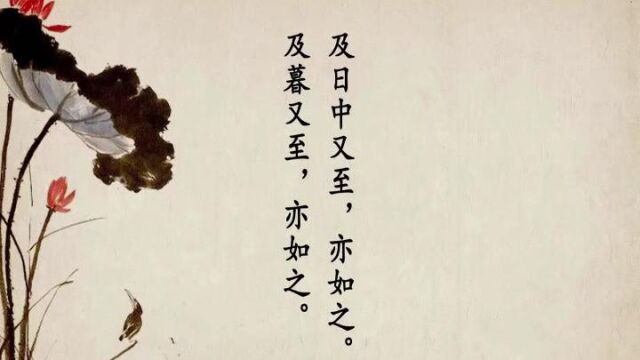 及日中又至，亦如之。
及暮又至，亦如之。